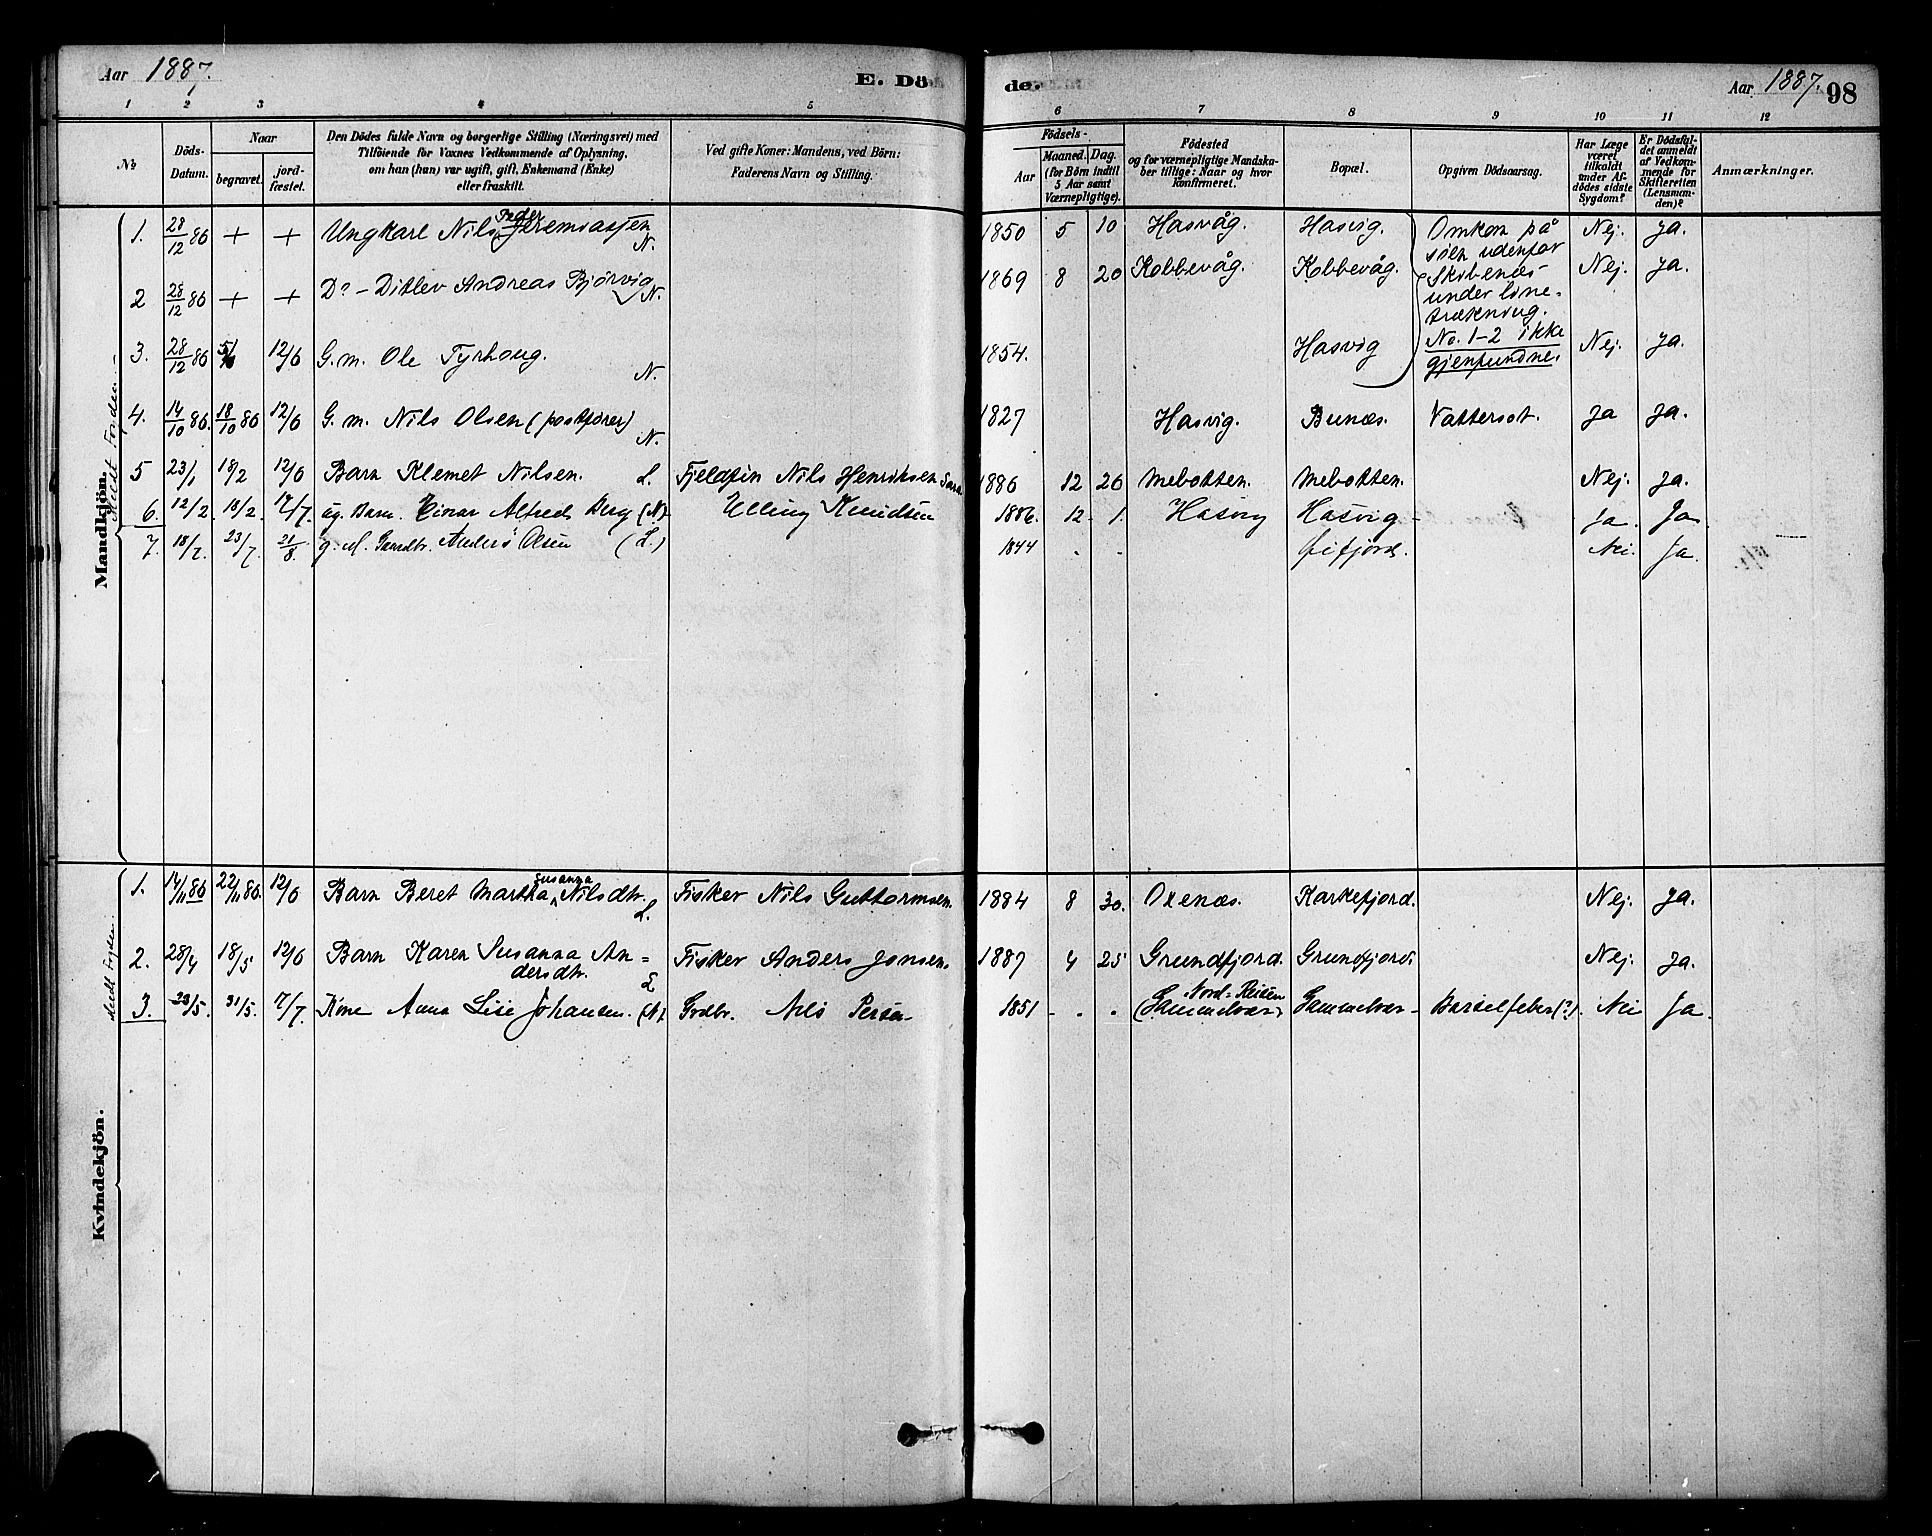 Aar 1887.
E. Dö
de.
Aar 1887. 98
1 2 3 4 5 6 7 8 9 10 11 12
No
Döds-Datum.
Naar
begravet.
jord-fæstet.
Den Dödes fulde Navn og borgerlige Stilling (Næringsvei) med
Tilföiende for Voxnes Vedkommende af Oplysning,
om han (hun) var ugift, gift, Enkemand (Enke)
eller fraskilt.
Ved gifte Koner: Mandens, ved Börn:
Faderens Navn og Stilling.
Födsels-
Aar
Maaned. Dag.
(for Börn indtil
5 Aar samt
Værnepligtige).
Födested
og for værnepligtige Mandska-
ber tillige: Naar og hvor
konfirmeret.
Bopæl.
Opgiven Dödsaarsag.
Har Læge
været
tilkaldt
under Af-
dödes sidste
Sygdom?
Er Dödsfal-
det anmeldt
af Vedkom-
mende for
Skifteretten
(Lensman-
den)?
Anmærkninger.
Mandkjön.
Peder
1. 28/12 86 + + Ungkarl Nils Jeremiassen N. 1850 5 10 Hasvåg. Hasvig. Omkom på Nej. Ja.
söen udenfor
2 28/12 86 + + Do - Ditlev Andreas Bjørvig N. 1869 8 20 Kobbevåg. Kobbevåg. Nej. Ja.
under line-
trækning.
3. 28/12 86 12/6 G.m. Ole Tyrhoug. N. 1854. Hasvig No. 1-2 ikke Nej. Ja.
gjenfundne.
4. 14/10 86. 18/10 86 12/6 G.m. Nils Olsen (postfører) N. 1827 Hasvig. Bunæs. Vattersot. Ja Ja.
5 23/1 18/2 12/6 Barn Klemet Nilsen. L. Fjeldfin Nils Henriksen Sara 1886 12 26 Mebotten. Mebotten. Nej. Ja.
6. 12/2. 18/2. 17/7. ug. Barn. Einar Alfred Berg (N). Elling Knudsen 1886. 12. 1. Hasvig Hasvig Ja. Ja
7. 18/7. 23/7. 21/8. g. M. Gaardbr. Anders Olsen (L.) 1844 - - Nei. Ja.
Kvindekjön.
Susanna
1. 14/11 86 22/11 86. 12/6 Barn Beret Martha Nilsdtr. L. Fisker Nils Guttormsen. 1884 8 30. Oxenæs. Karkefjord. Nej. Ja.
2. 28/4 18/5 12/6 Barn Karen Susanna An= Fisker Anders Jonsen. 1887 4 25 Grundfjord. Grundfjord. Nej. Ja.
dersdtr. L
Nord-Reisen
3. 23/5. 31/5. 7/7. Kone Anna Lise Johansen. (N). Grdbr. Nils Persen 1851 - - - (Gammelvær) Gammelvær - Barselfeber(?). Nei Ja.